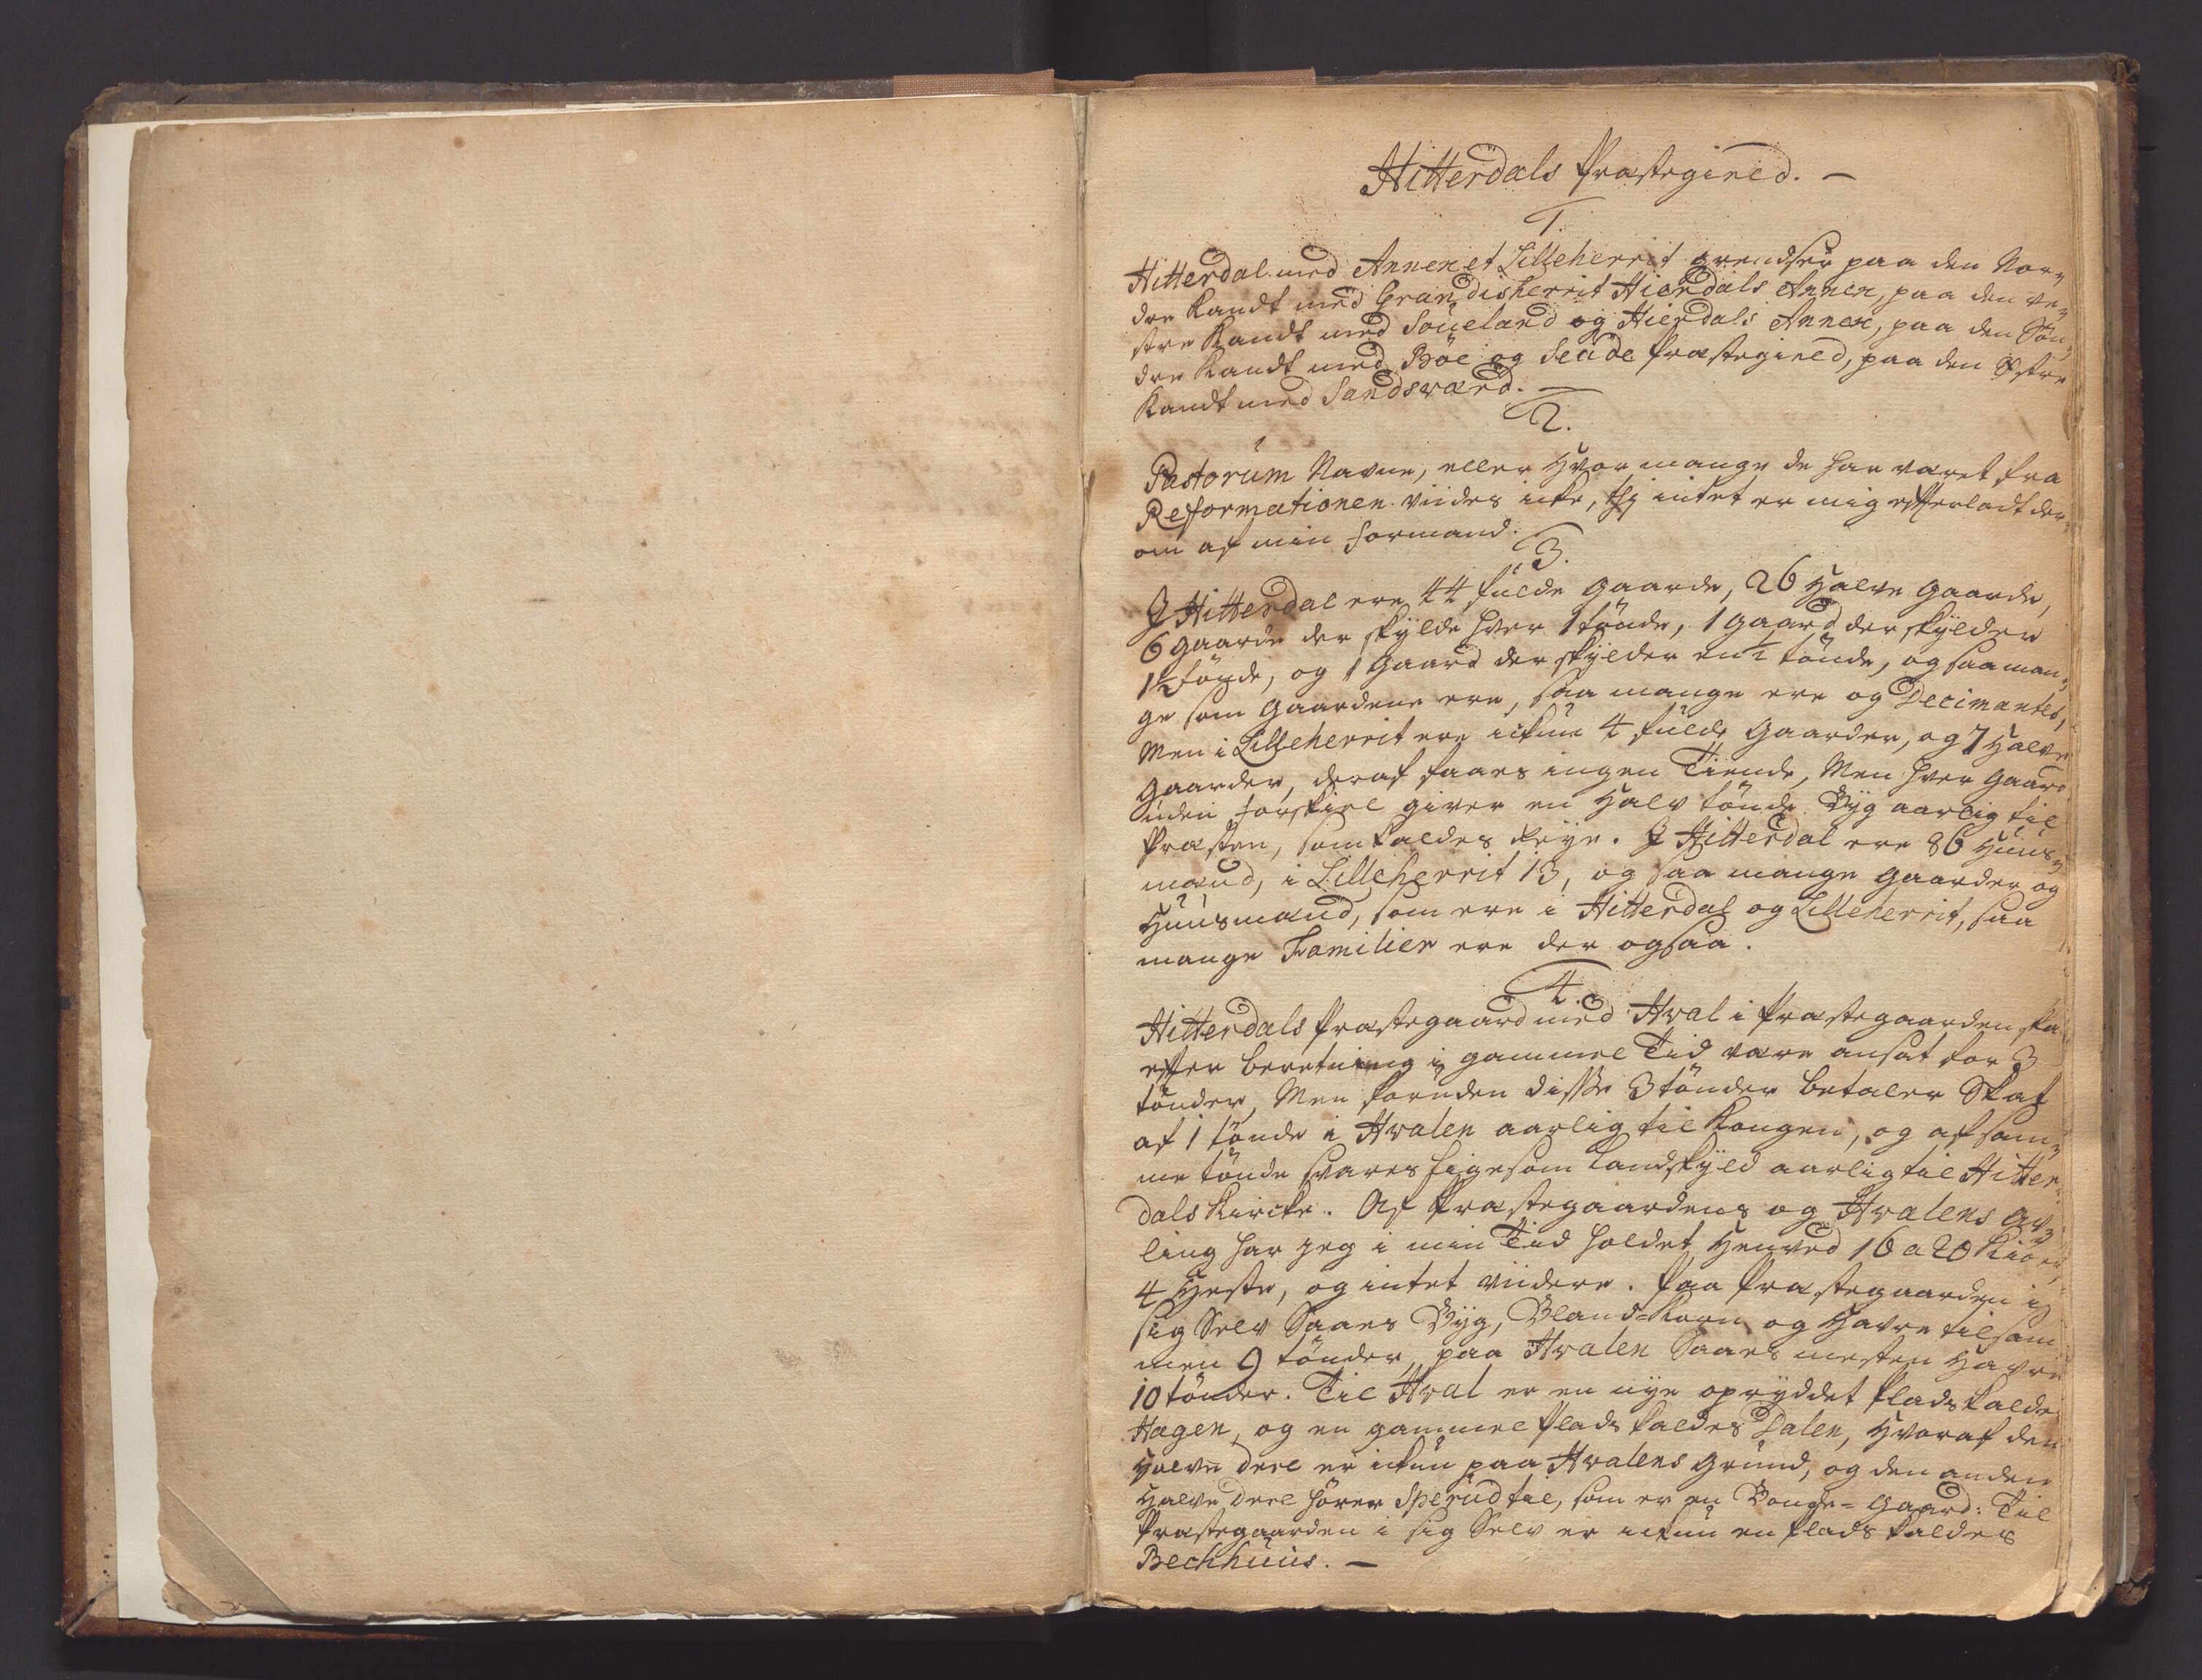 Hitterdals Præstegield. -
1.
Hitterdal med Annexet Lilleherrit grendser paa den Nor-
dre Kandt med Grandisherrit Hierdals Annex, paa den ve-
stre Kandt med Soüeland og Hierdals Annex, paa den Søn-
dre Kandt med Böe og Seüde Præstegield, paa den Østre
Kandt med Sandsværd. -
2.
Pastorum Navne, eller hvor mange de har været fra
Reformationen viides icke, thj intet er mig efterladt der-
om af min Formand.
3.
J Hitterdal ere 44 fulde Gaarde, 26 halve Gaarde,
6 Gaarde der skylde hver 1 tönde, 1 Gaard der skylder
1½ tönde, og 1 Gaard der skylder en ½ tönde, og saa man-
ge som Gaardene ere, saa mange ere og Decimantes,
Men i Lilleherrit ere ickun 4 fulde Gaarder, og 7 halve
Gaarder, deraf faaes ingen Tiende, Men hver Gaard
uden forskiel giver en halv tönde Byg aarlig til
Præsten, som kaldes Reye. J Hitterdal ere 86 Huus-
mænd, i Lilleherrit 13, og saa mange Gaarder og
Huusmænd, som ere i Hitterdal og Lilleherrit, saa
mange Familier ere der ogsaa.
4.
Hitterdals Præstegaard med Hval i Præstegaarden ska
efter beretning i gammel Tid være ansat for 3
tönder, Men foruden disse 3 tönder betaler Skat
af 1 tönde i Hvalen aarlig til Kongen, og af sam-
me tönde svares ligesom Landskyld aarlig til Hitter-
dals Kircke. Af Præstegaardens og Hvalens Av-
ling har jeg i min Tid holdet henved 16 a 20 Kiöer,
4 Heste, og intet viidere. Paa Præstegaarden i
sig Selv Saaes Byg, Bland-Korn og Havre tilsam
men 9 tönder, paa Hvalen Saaes mesten Havre
10 tönder. Til Hval er en nye opryddet Plads kalde
Hagen, og en gammel Plads kaldes Dalen, hvoraf den
halve deel er ickun paa Hvalens Grund, og den anden
halve deel hører Sperud til, som er en Bonde-Gaard: Til
Præstegaarden i sig Selv er ickun en Plads kaldes
Bechhuus. -